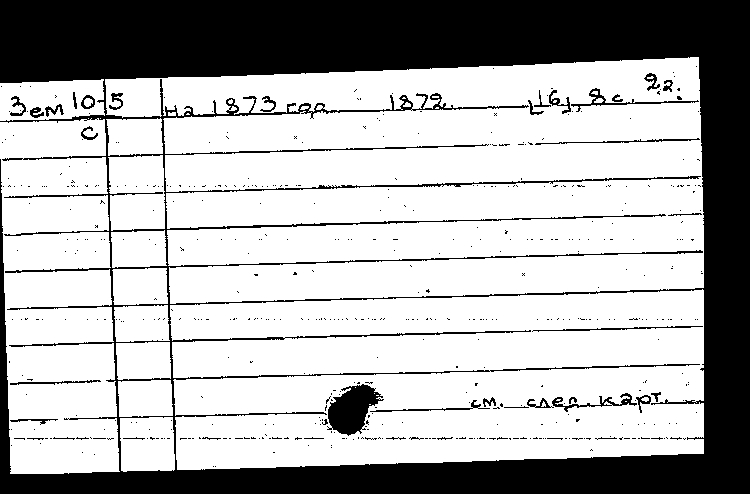 Зем 10-5 на 1873 год 1872. [16], 8 с. 22:
с
см. след. карт.